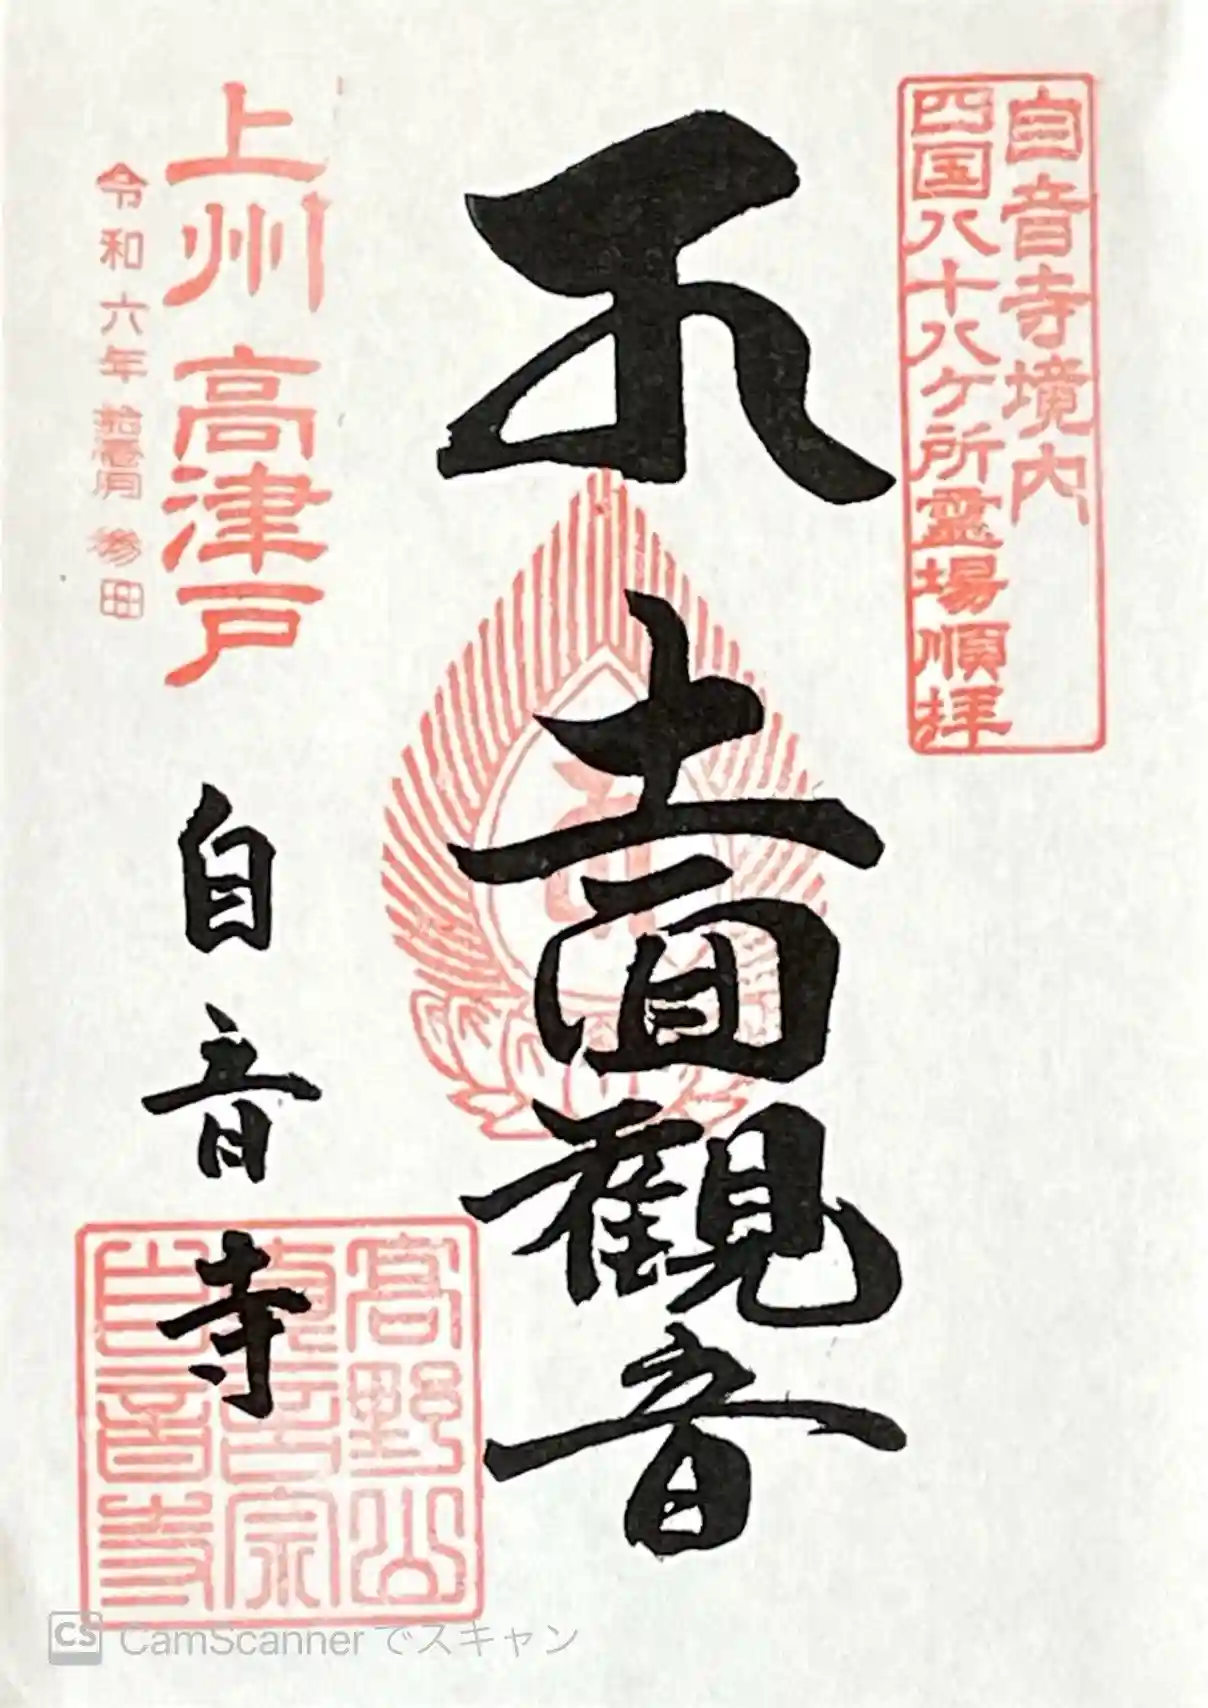 自音寺境内
四国八十八ケ所霊場順拝
十一面観音
上州 高津戸
自音寺
令和六年拾壱月参日
高野山
真言宗
自音寺
CS CamScanner でスキャン